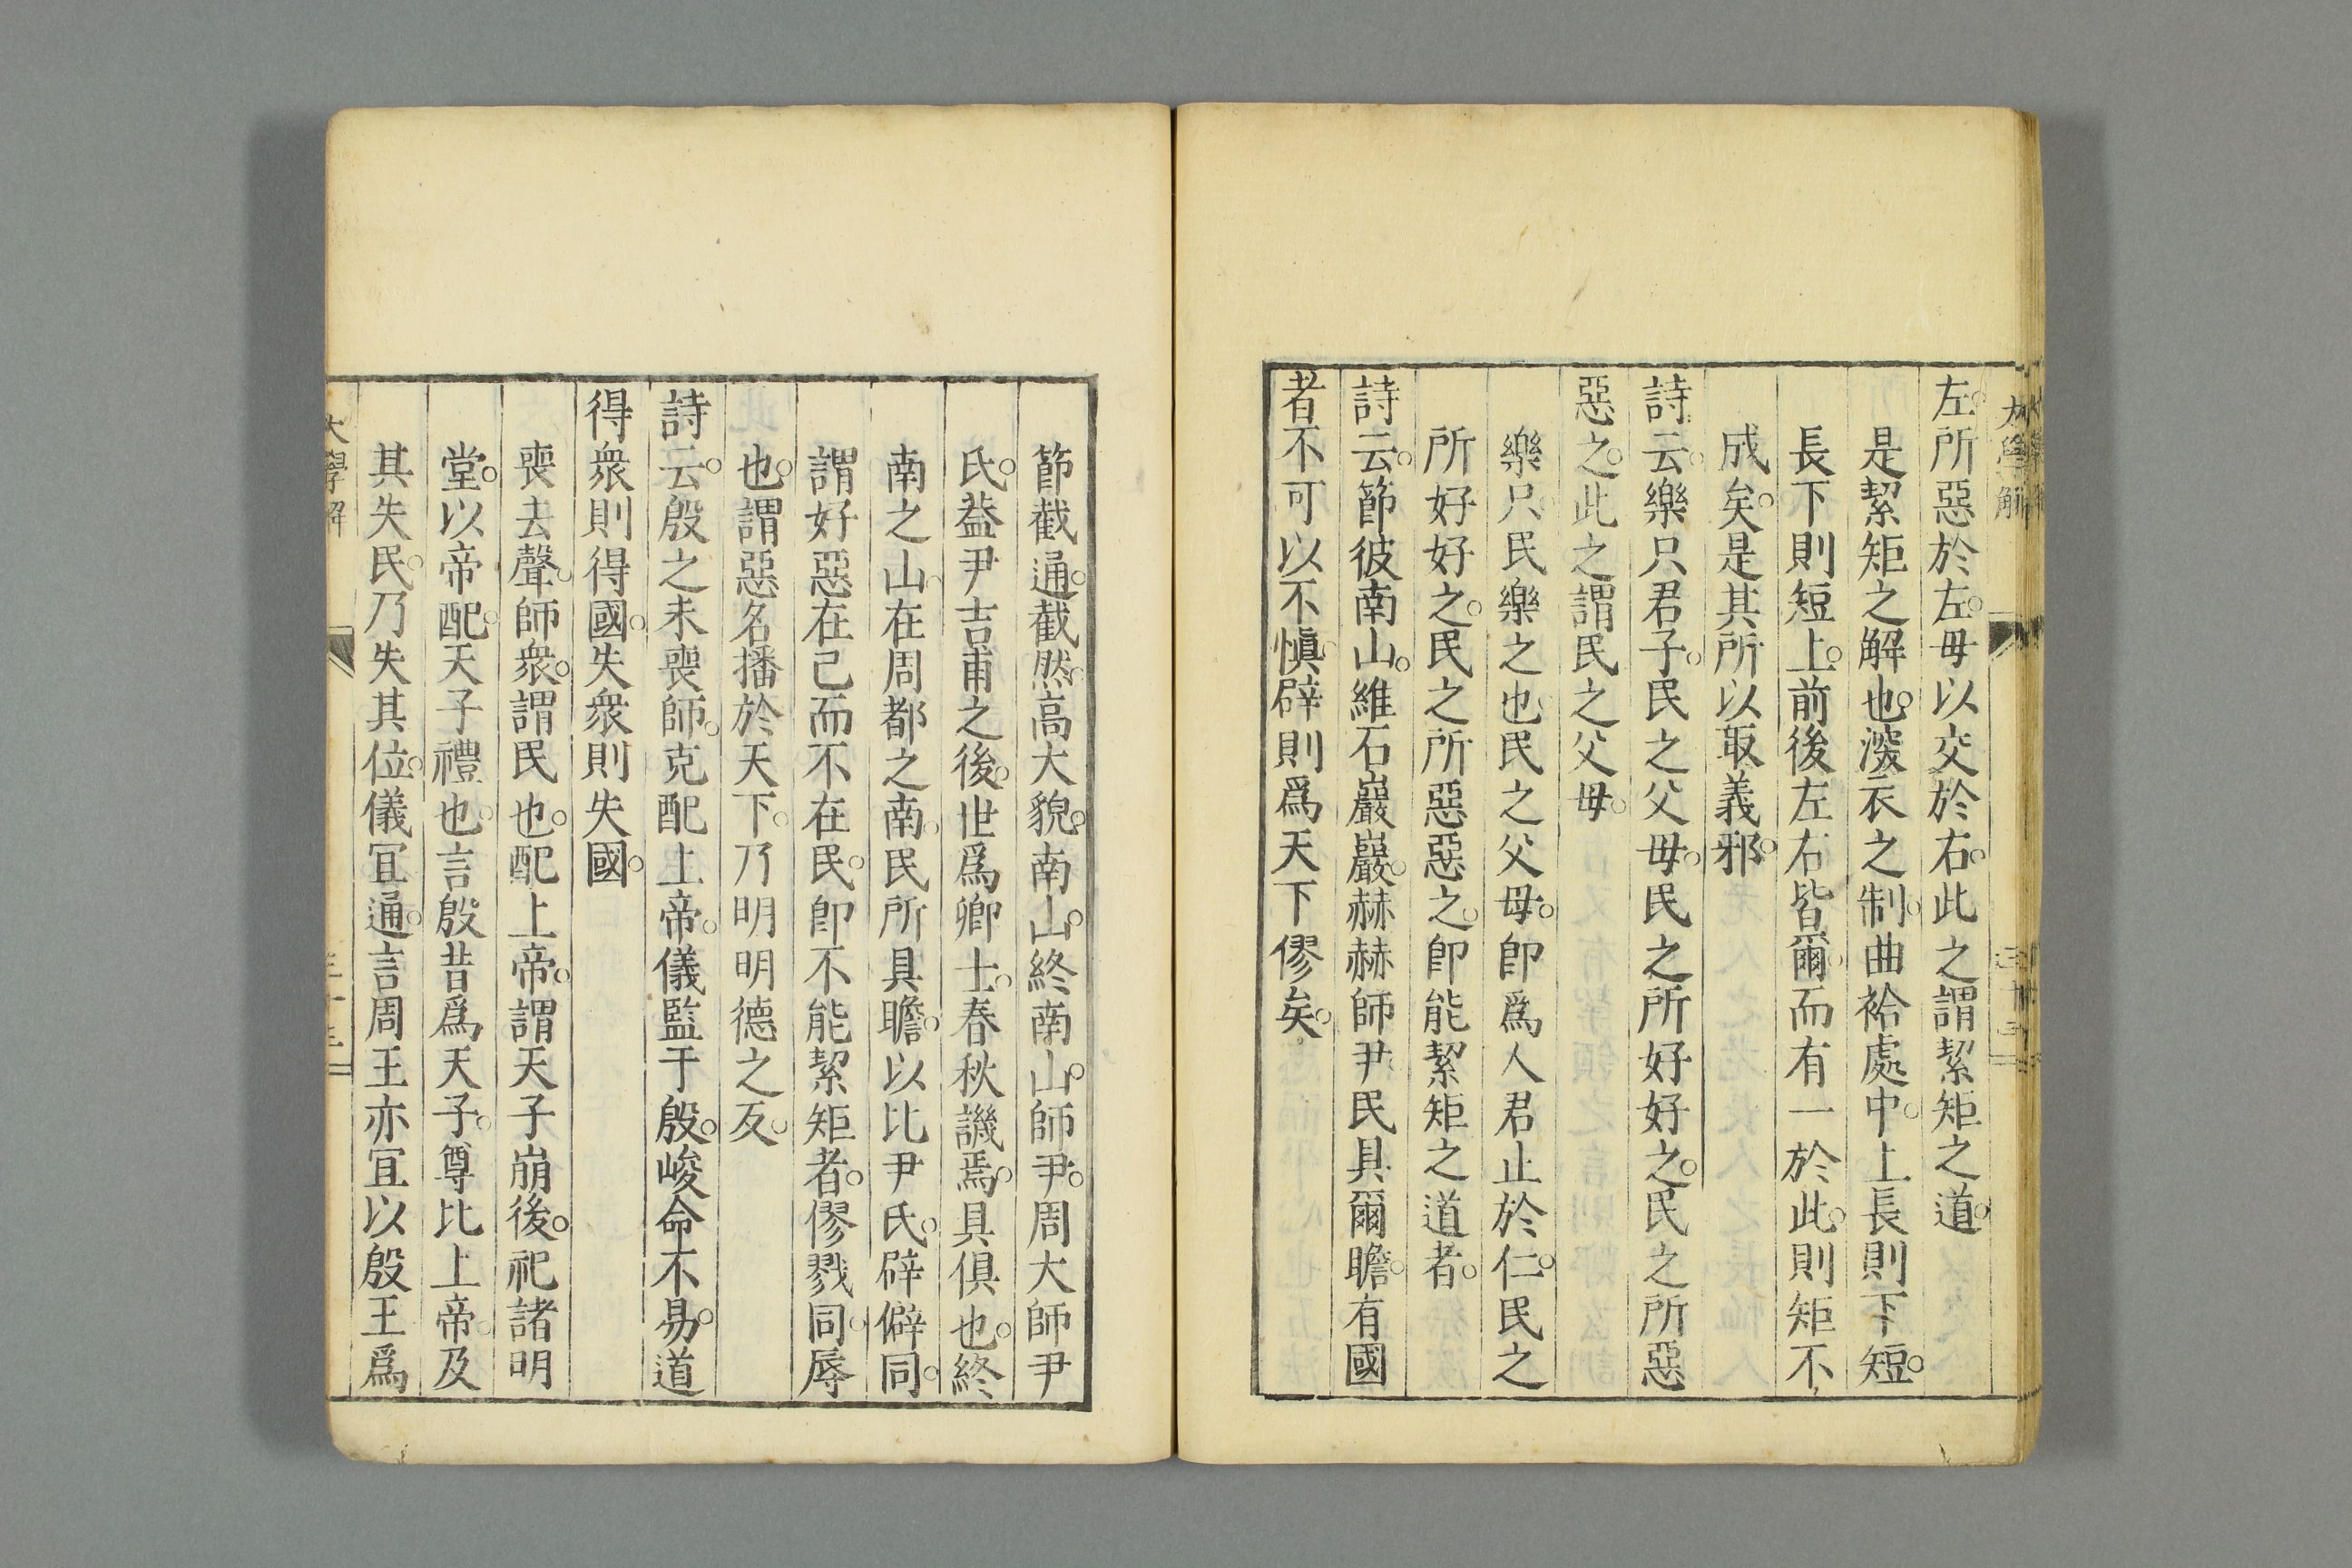 大學解
左。所惡於左。毋以交於右。此之謂絜矩之道。
是絜矩之解也。深衣之制。曲袷處中。上長則下短。
長下則短上。前後左右皆爾。而有一於此。則矩不
成矣。是其所以取義邪。
詩云。樂只君子。民之父母。民之所好好之。民之所惡
惡之。此之謂民之父母。
樂只民樂之也。民之父母。卽爲人君止於仁。民之
所好好之。民之所惡惡之。卽能絜矩之道者。
詩云。節彼南山。維石巖巖。赫赫師尹。民具爾瞻。有國
者不可以不愼。辟則爲天下僇矣。
節截通。截然。高大貌。南山。終南山。師尹。周大師尹
氏。葢尹吉甫之後。世爲卿士。春秋譏焉。具俱也。終
南之山。在周都之南。民所具瞻。以比尹氏。辟僻同。
謂好惡在己而不在民。卽不能絜矩者。僇戮同。辱
也。謂惡名播於天下。乃明明德之反。
詩云。殷之未喪師。克配上帝。儀監于殷。峻命不易。道
得衆則得國。失衆則失國。
喪去聲。師衆。謂民也。配上帝。謂天子崩後。祀諸明
堂。以帝配。天子禮也。言殷昔爲天子。尊比上帝。及
其失民。乃失其位。儀冝通。言周王亦冝以殷王爲
大學解